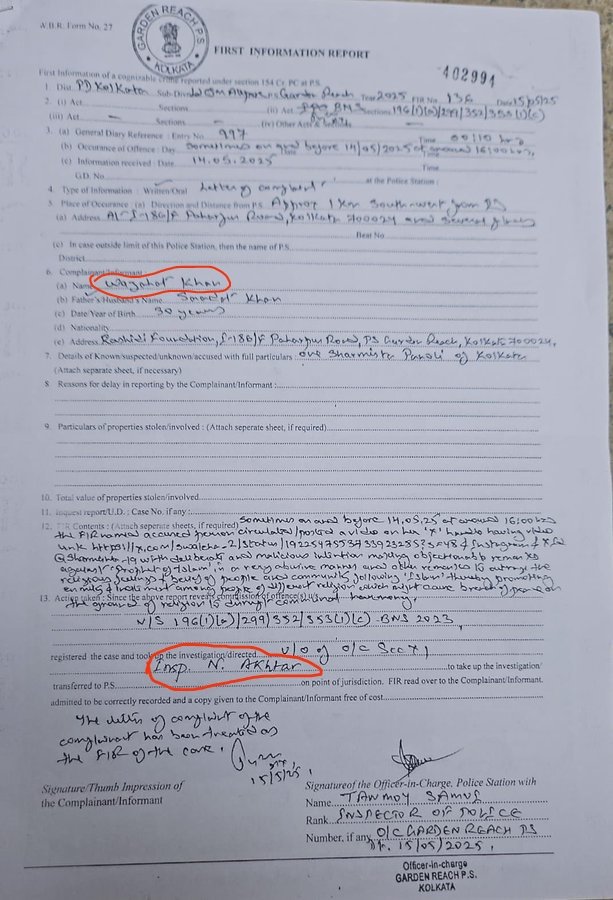 W.B.R. Form No. 27
GARDEN REACH P.S.
KOLKATA
FIRST INFORMATION REPORT
402991
First Information of a cognizable crime reported under section 154 Cr. PC at P.S.
1. Dist. PD Kolkata Sub-Divn. PS Garden Reach Year 2025 FIR No. 136 Date 15/05/25
2. (i) Act Sections (ii) Act BNS Sections 196(1)(a)/299/352/353(1)(c)
(iii) Act Sections (iv) Other Acts & Sections
3. (a) General Diary Reference : Entry No. 997 Time 00:10 hrs
(b) Occurrence of Offence : Day Sometimes on and before 14/05/2025 at around 16:00 hrs.
(c) Information received : Date 14.05.2025 Time
G.D. No. at the Police Station :
4. Type of Information : Written/Oral Letter of complaint.
5. Place of Occurance (a) Direction and Distance from P.S. Approx 1 Km Southwest from PS
(a) Address Paharpur Road, Kolkata 700024 and several places
Beat No
(c) In case outside limit of this Police Station, then the name of P.S.
District
6. Complainant/Informant :
(a) Name Wazahat Khan
(b) Father's/Husband's Name Saadat Khan
(c) Date/Year of Birth 30 years
(d) Nationality
(e) Address Rashidi Foundation, J-186/F Paharpur Road, PS Garden Reach, Kolkata 700024.
7. Details of Known/suspected/unknown/accused with full particulars one Sharmista Panoli of Kolkata
(Attach separate sheet, if necessary)
8. Reasons for delay in reporting by the Complainant/Informant :
9. Particulars of properties stolen/involved : (Attach seperate sheet, if required)
10. Total value of properties stolen/involved
11. Inquest report/U.D. : Case No. if any :
12. FIR Contents : (Attach seperate sheets, if required) Sometimes on and before 14.05.25 at around 16:00 hrs
the FIR named accused person circulated/posted a video on her 'X' handle having video
link https://x.com/ & Instagram & X Id
with deliberate and malicious intention making objectionable remarks
against 'Prophet of Islam' in a very abusive manner and other remarks to outrage the
religious feelings & belief of people and community following 'Islam' thereby promoting
enmity & among people of different religion which might cause breach of peace on
the ground of religion to disrupt communal harmony.
13. Action taken : Since the above report reveals commission of offence(s) u/s
U/S 196(1)(a)/299/352/353(1)(c) BNS 2023,
registered the case and took up the investigation/directed u/o of o/c
Insp. N. Akhtar to take up the investigation/
transferred to P.S. on point of jurisdiction. FIR read over to the Complainant/Informant.
admitted to be correctly recorded and a copy given to the Complainant/Informant free of cost
The letter of complaint of the
complainant has been treated as
the FIR of the case.
15/5/25.
Signature/Thumb Impression of
the Complainant/Informant
Signatureof the Officer-in-Charge, Police Station with
Name TANMOY SAMUI
Rank INSPECTOR OF POLICE
Number, if any O/C GARDEN REACH PS
Dt. 15/05/2025.
Officer-in-charge
GARDEN REACH P.S.
KOLKATA